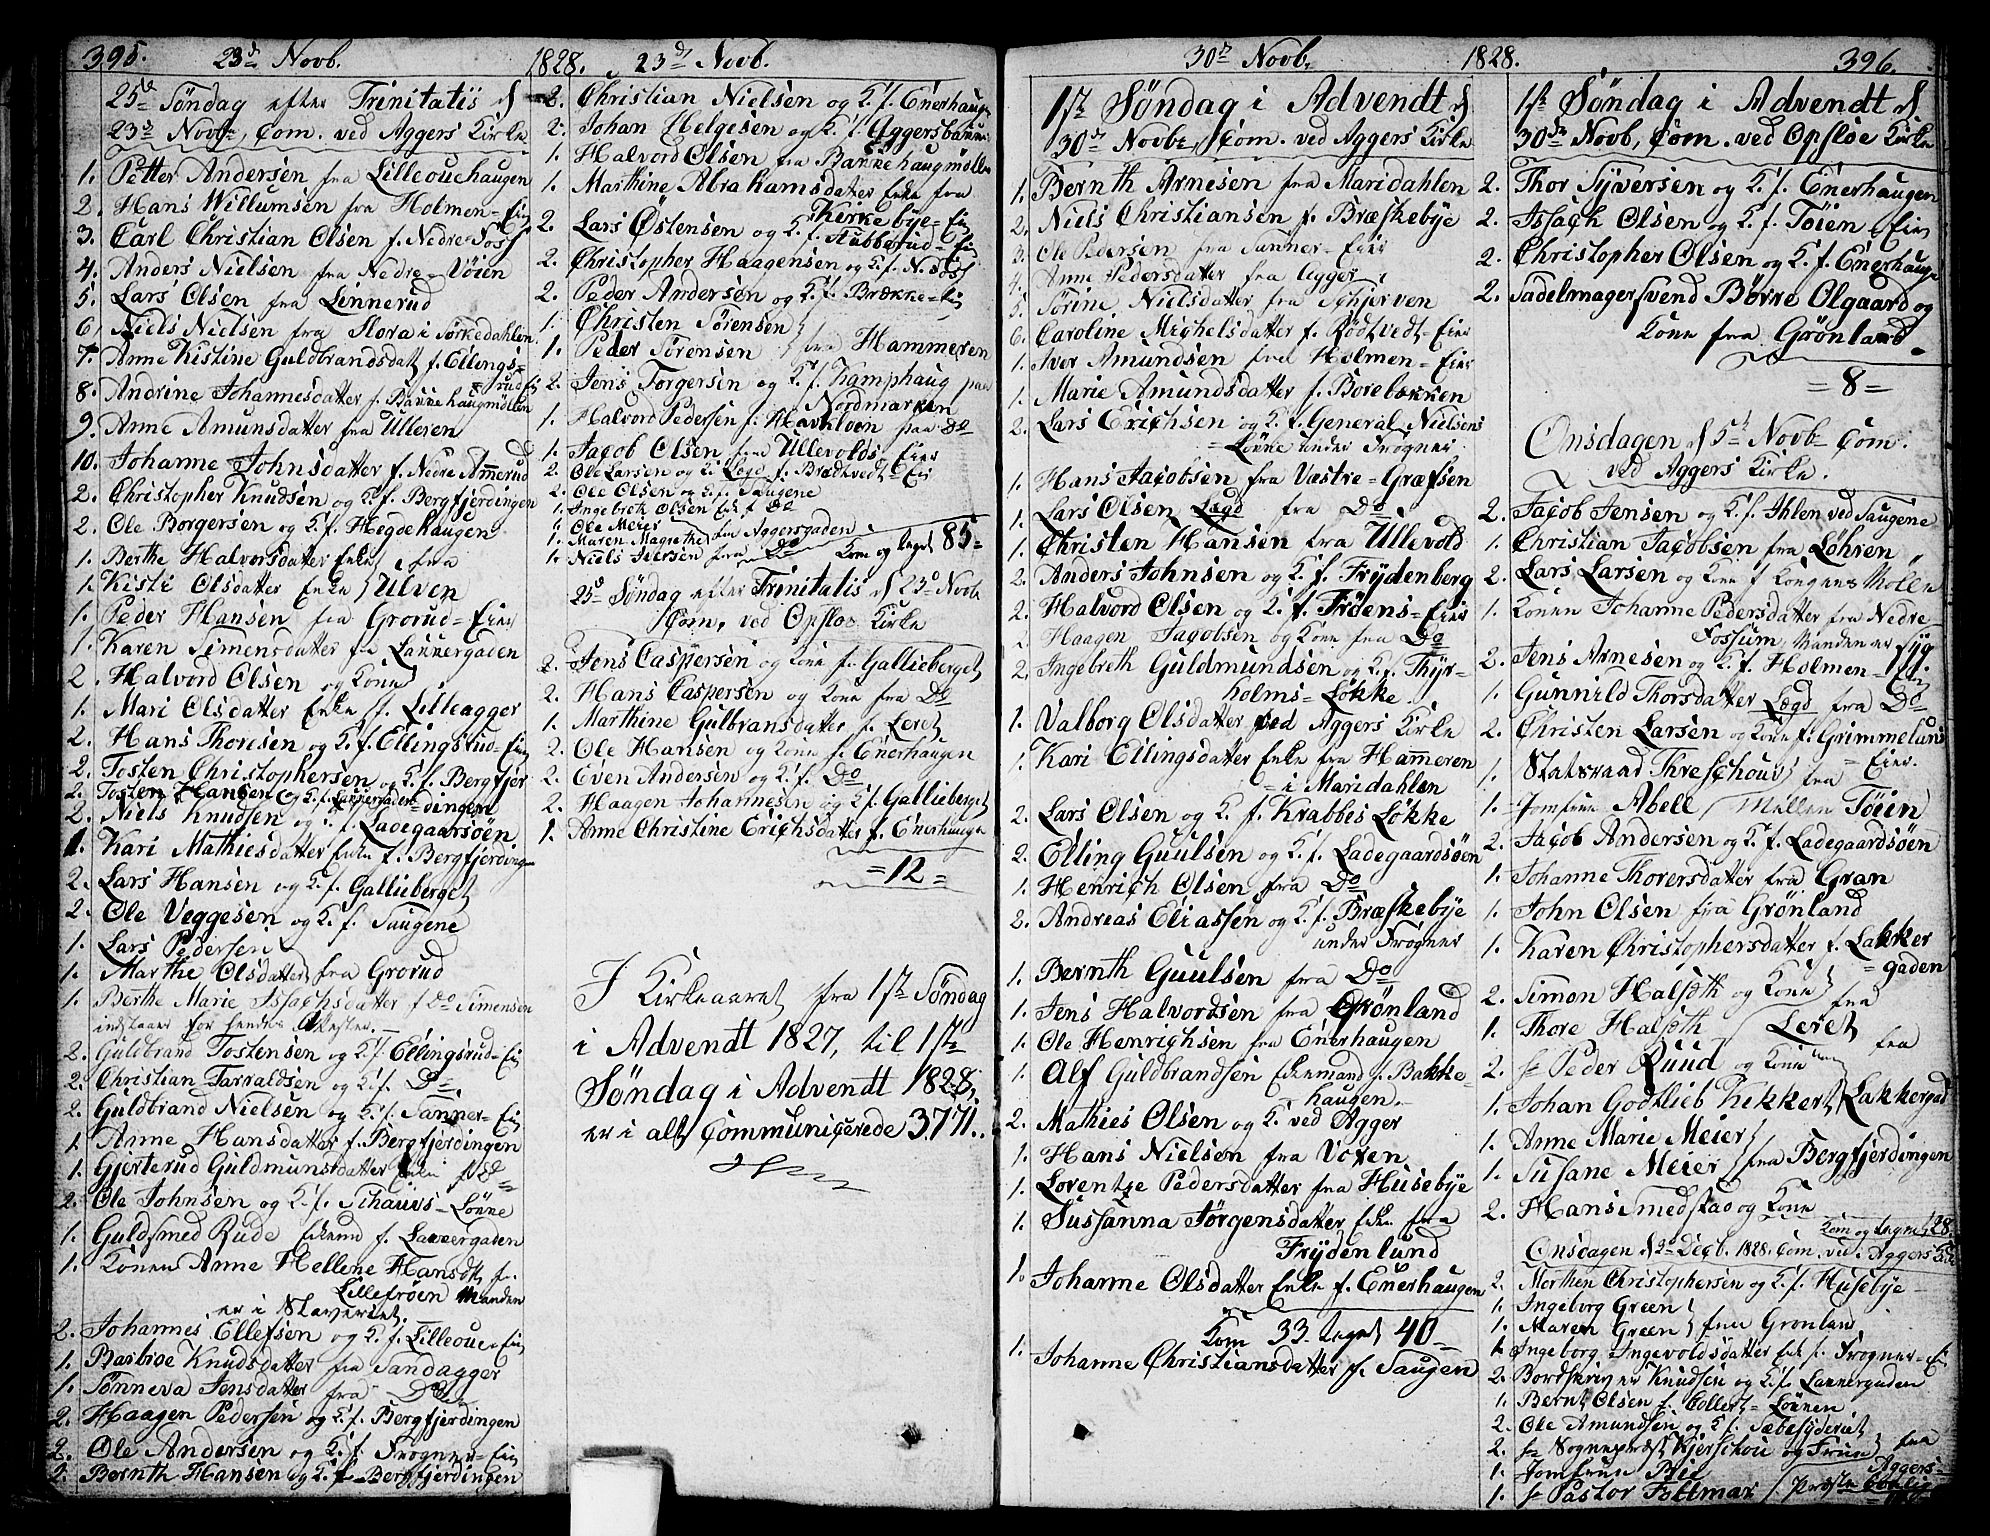 395. 23d Novb. 1828. 23d Novb.
25de Søndag efter Trinitatis d
23de Novb, Com. ved Aggers Kirke
1. Petter Andersen fra Lilleouehaugen
2. Hans Willumsen fra Holmen=Eie
3. Carl Christian Olsen f. Nedre Foss
4. Anders Nielsen fra Nedre=Vöien
5. Lars Olsen fra Linnerud
6. Niels Nielsen fra Flora i Sørkedahlen
7. Anne Kistine Guldbrandsdat f. Ellings=
rud Eie
8. Andrine Johannesdatter f. Bannehaugmöllen
9. Anne Amunsdatter fra Ulleren
10. Johanne Johnsdatter f. Nedre Ammerud
2. Christopher Knudsen og K. f. Bergfjerdingen
2. Ole Borgersen og K. f. Hegdehaugen
1. Berthe Halvorsdatter Enke fra
1. Kisti Olsdatter Enke Ulven
1. Peder Hansen fra Grorud=Eier
1. Karen Simensdatter fra Lakkergaden
2. Halvord Olsen og Kone
1. Mari Olsdatter Enke f. Lilleagger
2. Hans Thoresen og K. f. Ellingsrud=Eie
2. Tosten Christophersen og K. f. Bergfjer
dingen
2. Tosten Hansen og K. f. Lakkergaden
2. Niels Knudsen og K. f. Ladegaarsöen
1. Kari Mathiesdatter Enke f. Bergfjerdingen
2. Lars Hansen og K. f. Gallieberget
2. Ole Veggesen og K. f. Saugene
1. Lars Pedersen
1. Marthe Olsdatter fra Grorud
1. Berthe Marie Issachsdatter f Do Simensen
indstaaer for hendes
2. Guldbrand Tostensen og K. f. Ellingsrud=Eie
2. Christian Tarraldsen og K. f. Do
2. Guldbrand Nielsen og K. f. Sanner=Eie
1. Anne Hansdatter f. Bergfjerdingen
1. Gjerterud Guldmunsdatter Enke f Do
2. Ole Johnsen og K. f. Schauvs=Lönne
1. Guldsmed Rude Enkemd f. Lakkergaden
1. Konen Anne Hellene Hansdt f.
Lillefröen Manden
er i Slaveriet
2. Johannes Ellefsen og K. f. Lilleoue=Eie
1. Barbroe Knudsdatter fra Sandagger
1. Sönneva Jensdatter fra Do
2. Haagen Pedersen og K. f. Bergfjerdingen
2. Ole Andersen og K. f. Frogner=Eie
2. Bernth Hansen og K. f. Bergfjerdingen
2. Christian Nielsen og K. f. Enerhaugen
2. Johan Helgesen og K. f. Aggersbanne
1. Halvord Olsen fra Bannehaugmölle
1. Marthine Abrahamsdatter Enke fra
Kirkebye=Eie
2. Lars Östensen og K. f. Stubberud=Eie
2. Christopher Haagensen og K. f. N. Foss
2. Peder Andersen og K. f. Brække=Eie
1. Christen Sörensen
1. Peder Sörensen fra Hammeren
2. Jens Torgersen og K. f. Kamphaug paa
Nordmarken
1. Halvord Pedersen f. Hakkloen paa Do
1. Jacob Olsen fra Ullevolds=Eier
2. Ole Larsen og K. Lægd f. Brædtvedt=Eie
2. Ole Olsen og K. f. Saugene
1. Ingebreth Olsen Enk f Do
1. Ole Meier
1. Maren Magrethe fra Aggersgaden
1. Niels Iversen fra Do Kom og taget 85=
25de Söndag efter Trinitatis d 23de Novb
Com. ved Opsloe Kirke
2. Jens Caspersen og Kone f. Gallieberget
2. Hans Caspersen og Kone fra Do
1. Marthine Gulbransdatter f. Leret
2. Ole Hansen og Kone f. Enerhaugen
2. Even Andersen og K. f. Do
2. Haagen Johannesen og K. f. Gallieberget
1. Anne Christine Erichsdatter f. Enerhaugen
=12=
I Kirkeaaret fra 1ste Söndag
i Advendt 1827, til 1ste
Söndag i Advendt 1828,
er i alt Communicerede 3771.
30te Novb. 1828. 396.
1ste Söndag i Advendt d
30de Novb, Com. ved Aggers Kirke
1. Bernth Arnesen fra Maridahlen
2. Niels Christiansen f. Bræskebye
3. Ole Pedersen fra Sanner=Eier
4. Anne Pedersdatter fra Agger
5. Sörine Nielsdatter fra Schjerven
6. Caroline Michelsdatter f. Rödtvedt=Eier
1. Iver Amundsen fra Holmen=Eier
1. Marie Amundsdatter f. Borebækken
2. Lars Erichsen og K. f. General Nielsens
=Lönne under Frogner
1. Hans Jacobsen fra Væstre=Græfsen
1. Lars Olsen Lægd fra Do
1. Christen Hansen fra Ullevold
2. Anders Johnsen og K. f. Frydenberg
2. Halvord Olsen og K. f. Fröens=Eier
2. Haagen Jacobsen og Kone fra Do
2. Ingebreth Guldmundsen og K. f. Thyr=
holms=Lökke
1. Valborg Olsdatter ved Aggers Kirke
1. Kari Ellingsdatter Enke fra Hammeren
=i Maridahlen
2. Lars Olsen og K. f. Krabbes Lökke
2. Elling Guulsen og K. f. Ladegaardsöen
1. Henrich Olsen fra Do
2. Andreas Eliassen og K. f. Bræskebye
under Frogner
1. Bernth Guulsen fra Do
1. Jens Halvordsen fra Grönland
1. Ole Henrichsen fra Enerhaugen
1. Alf Guldbrandsen Enkemand f. Bakke=
haugen
2. Mathies Olsen og K. ved Agger
1. Hans Nielsen fra Voxen
1. Lorentze Pedersdatter fra Husebye
1. Sussanna Jörgensdatter Enke fra
Frydenlund
1. Johanne Olsdatter Enke f. Enerhaugen
Kom 33. taget 40=
1. Johanne Christiansdatter f. Saugen
1ste Söndag i Advendt d
30de Novb, Com. ved Opsloe Kirke
2. Thor Syversen og K. f. Enerhaugen
2. Issach Olsen og K. f. Töien=Eie
2. Christopher Olsen og K. f. Enerhauge
2. Sadelmagersvend Börre Olgaard og
Kone fra Grönland.
=8=
Onsdagen d 5te Novb Com.
ved Aggers Kirke.
2. Jacob Jensen og K. f. Ihlen ved Saugene
1. Christian Jacobsen fra Löhren
2. Lars Larsen og Kone f Kongens Mölle
1. Konen Johanne Pedersdatter fra Nedre
Fossum Manden er Syg
2. Jens Arnesen og K. f. Holmen=Eie
1. Gunnild Thorsdatter Lægd fra Do
2. Christen Larsen og Kone f. Grimmelund
=Eier.
1. Statsraad Treschouv fra
1. Jomfrue Abell Millen Töien
2. Jacob Andersen og K. f. Ladegaardsöen
1. Johanne Thorersdatter fra Gran
1. John Olsen fra Grönland
1. Karen Christophersdatter f. Lakker
=gaden
2. Simon Halseth og Kone fra
1. Thore Halseth Leret
2. Hr Peder Ruud og Kone fra
1. Johan Godtlieb Kekkert Lakkergad
1. Anne Marie Meier
1. Susane Meier fra Bergfjerdingen
2. Hans Smedstad og Kone
Kom og tagne 28.
Onsdagen d 2de Decb. 1828. Com. ved Aggers Kirke
2. Morthen Christophersen og K. f. Husebye
1. Ingeborg Green
1. Maren Green fra Grönland
1. Ingeborg Ingevoldsdatter Enk f. Frogner=Ei
2. Bordskriver Knudsen og K. f. Lakkergaden
1. Bernt Olsen f. Collett=Lönnen
2. Ole Amundsen og K. f. Sæbesyderiet
2. Hr Sogneprest Kjerschou og Frue fra
1. Jomfrue Brie Aggers=
1. Hr Pastor Foltmar Præste